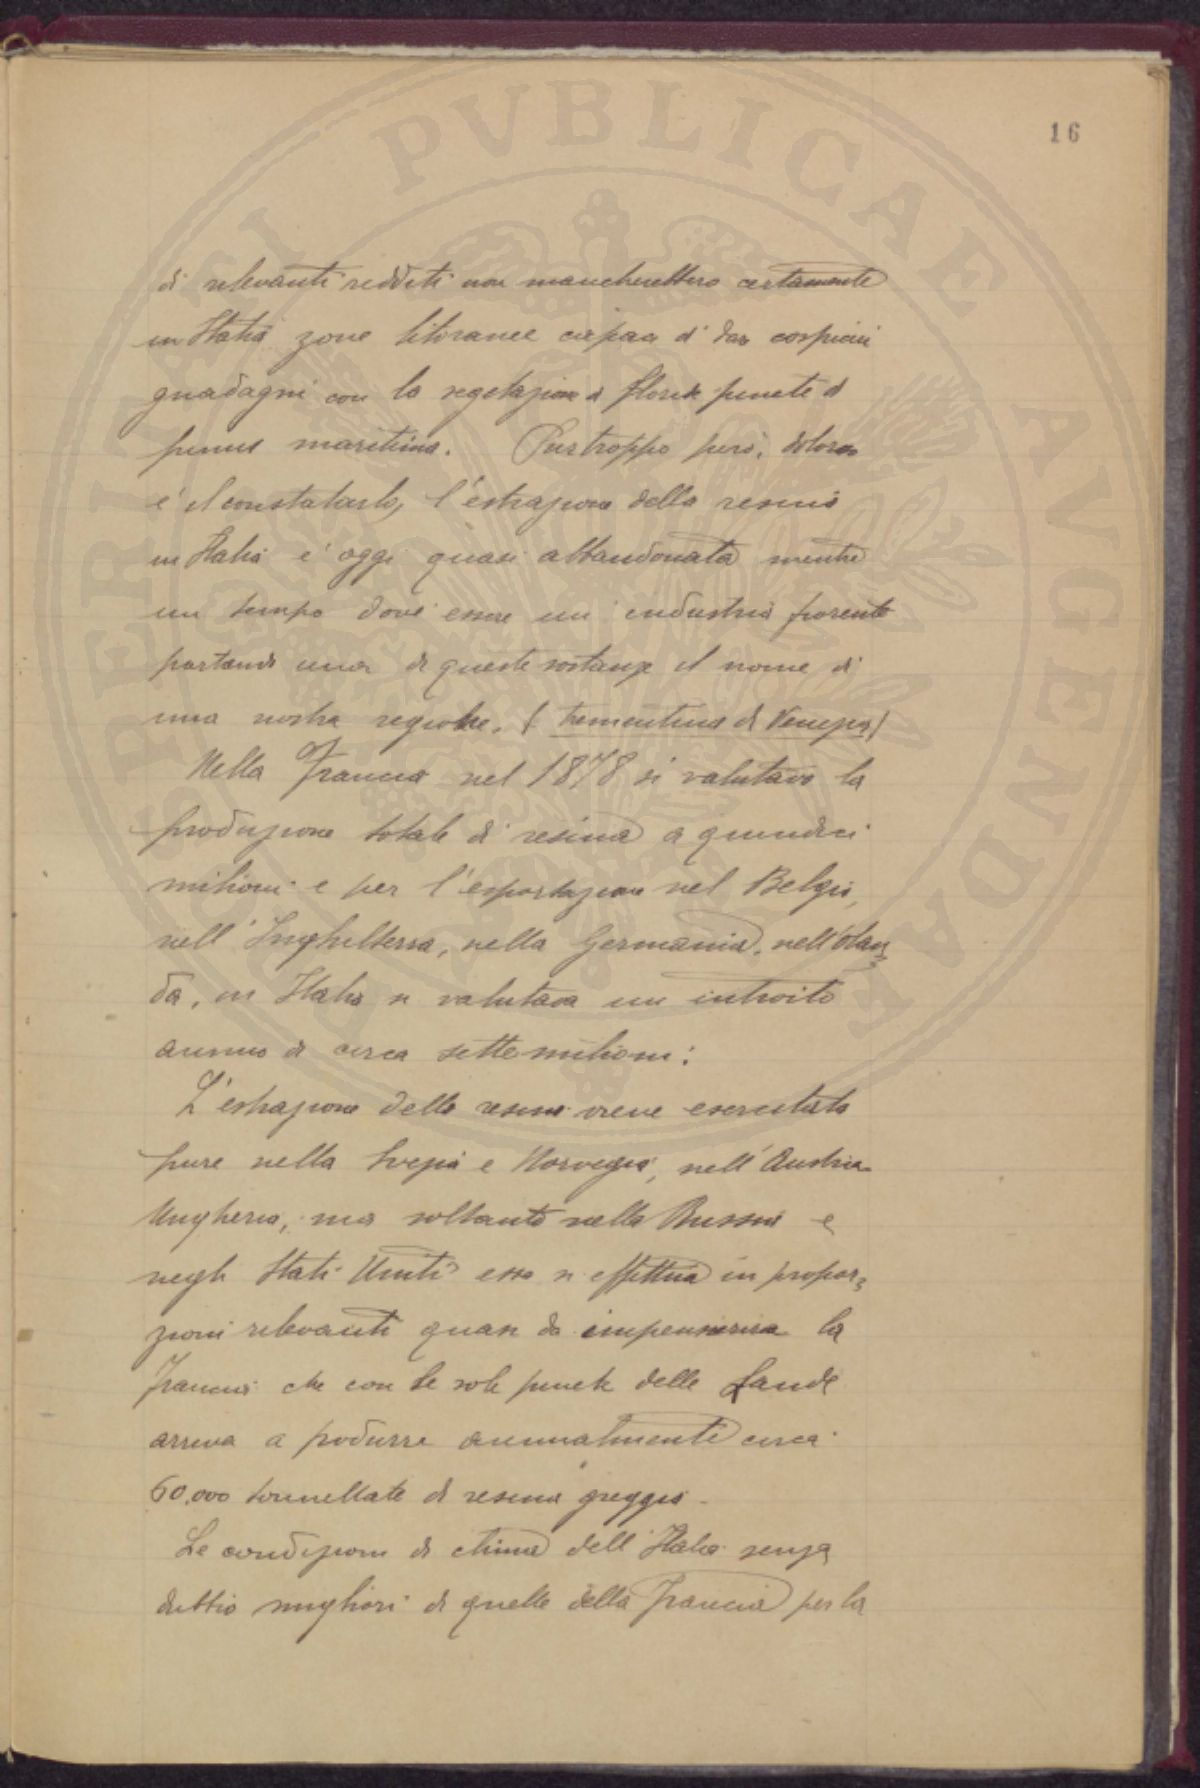 16
di rilevanti redditi non mancherebbero certamente
in Italia zone litoranee capaci di dar cospicui
guadagni con la vegetazione di floride pinete di
pinus maritima. Purtroppo però, doloroso
è il constatarlo, l'estrazione della resina
in Italia è oggi quasi abbandonata mentre
un tempo dové essere un industria fiorente
portando una di queste sostanze il nome di
una nostra regione. (trementina di Venezia)
Nella Francia nel 1878 si valutava la
produzione totale di resina a quindici
milioni e per l'esportazione nel Belgio,
nell'Inghilterra, nella Germania, nell'Olan=
da, in Italia si valutava un introito
annuo di circa sette milioni:
L'estrazione della resina viene esercitata
pure nella Svezia e Norvegia, nell'Austria
Ungheria, ma soltanto nella Russia e
negli Stati Uniti essa si effettua in propor=
zioni rilevanti quasi da impensierire la
Francia che con le sole pinete delle Lande
arriva a produrre annualmente circa
60.000 tonnellate di resina greggia.
Le condizioni di clima dell'Italia senza
dubbio migliori di quelle della Francia per la
SPERIENTIA PVBLICAE AVGENDAE